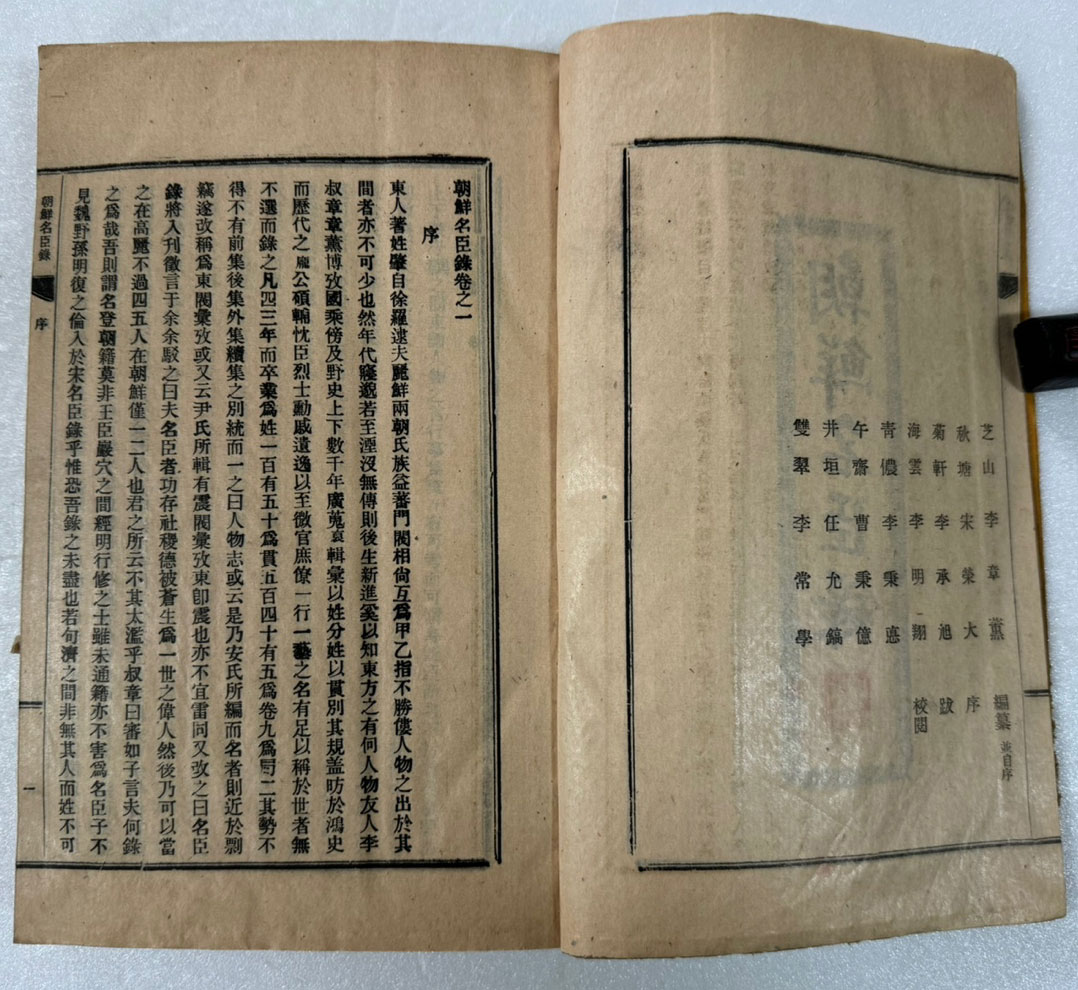 芝山 李章薰 編纂 並自序
秋塘 宋榮大 序
菊軒 李承旭 跋
海雲 李明翔 校閱
靑儂 李秉悳
午齋 曹秉億
井垣 任允鎬
雙翠 李常學
朝鮮名臣錄卷之一
序
東人著姓肇自徐羅逮夫麗鮮兩朝氏族益蕃門閥相尙互爲甲乙指不勝僂人物之出於其
間者亦不可少也然年代寖邈若至湮沒無傳則後生新進奚以知東方之有何人物友人李
叔章章薰博攷國乘傍及野史上下數千年廣蒐裒輯彙以姓分姓以貫別其規盖昉於鴻史
而歷代之厖公碩輔忱臣烈士勳戚遺逸以至微官庶僚一行一藝之名有足以稱於世者無
不選而錄之凡四三年而卒業爲姓一百有五十爲貫五百四十有五爲卷九爲局二其勢不
得不有前集後集外集續集之別統而一之曰人物志或云是乃安氏所編而名者則近於剽
竊遂改稱爲東閣彙攷或又云尹氏所輯有震閥彙攷東卽震也亦不宜雷同又改之曰名臣
錄將入刊徵言于余余駁之曰夫名臣者功存社稷德被蒼生爲一世之偉人然後乃可以當
之在高麗不過四五人在朝鮮僅一二人也君之所云不其太濫乎叔章曰審如子言夫何錄
之爲哉吾則謂名登朝籍莫非王臣巖穴之間經明行修之士雖未通籍亦不害爲名臣子不
見魏野孫明復之倫入於宋名臣錄乎惟恐吾錄之未盡也若句濟之間非無其人而姓不可
朝鮮名臣錄 序 一